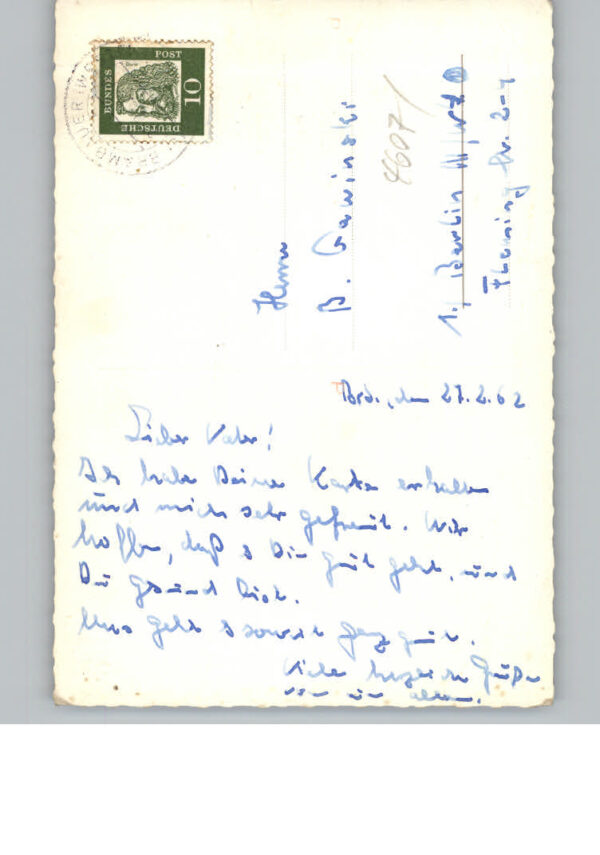 DEUTSCHE
BUNDES
POST
10
BRAMBAUER
Herrn
B. Gawinski
1., Berlin
4607/
27.2.62
Lieber Vater!
Ich habe Deine Karte erhalten
und mich sehr gefreut. Wir
hoffen, daß es Dir gut geht, und
Du gesund bist.
Uns geht es soweit ganz gut.
Viele herzliche Grüße
von uns allen.